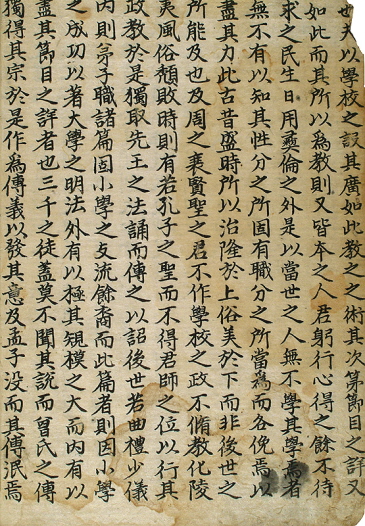 夫以學校之設其廣如此教之之術其次苐節目之詳又
如此而其所以爲教則又皆夲之人君躬行心得之餘不待
求之民生日用彛倫之外是以當世之人無不學其學焉者
無不有以知其性分之所固有職分之所當爲而各俛焉以
盡其力此古昔盛時所以治隆於上俗美於下而非後世之
所能及也及周之衰賢聖之君不作學校之政不脩教化陵
夷風俗頹敗時則有若孔子之聖而不得君師之位以行其
政教於是獨取先王之法誦而傳之以詔後世若曲禮少儀
内則苐子職諸篇固小學之攴流餘裔而此篇者則因小學
之成功以著大學之明法外有以極其規模之大而内有以
盡其節目之詳者也三千之徒蓋莫不聞其說而曾氏之傳
獨得其宗於是作爲傳義以發其意及孟子没而其傳泯焉